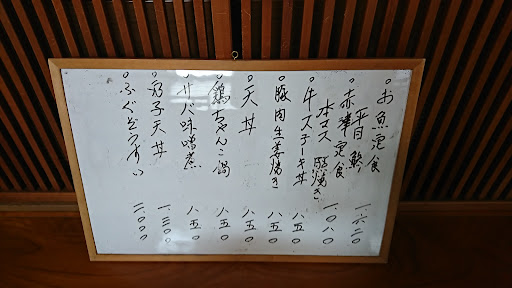 お魚定食
平目 鯵
一、六二〇
赤津定食
本マス 塩焼き
一、〇八〇
牛ステーキ丼
八五〇
豚肉生姜焼き
八五〇
天丼
八五〇
鶏ちゃんこ鍋
八五〇
サバ味噌煮
八五〇
穴子天丼
一、三〇〇
ふぐぞうすい
二、〇〇〇